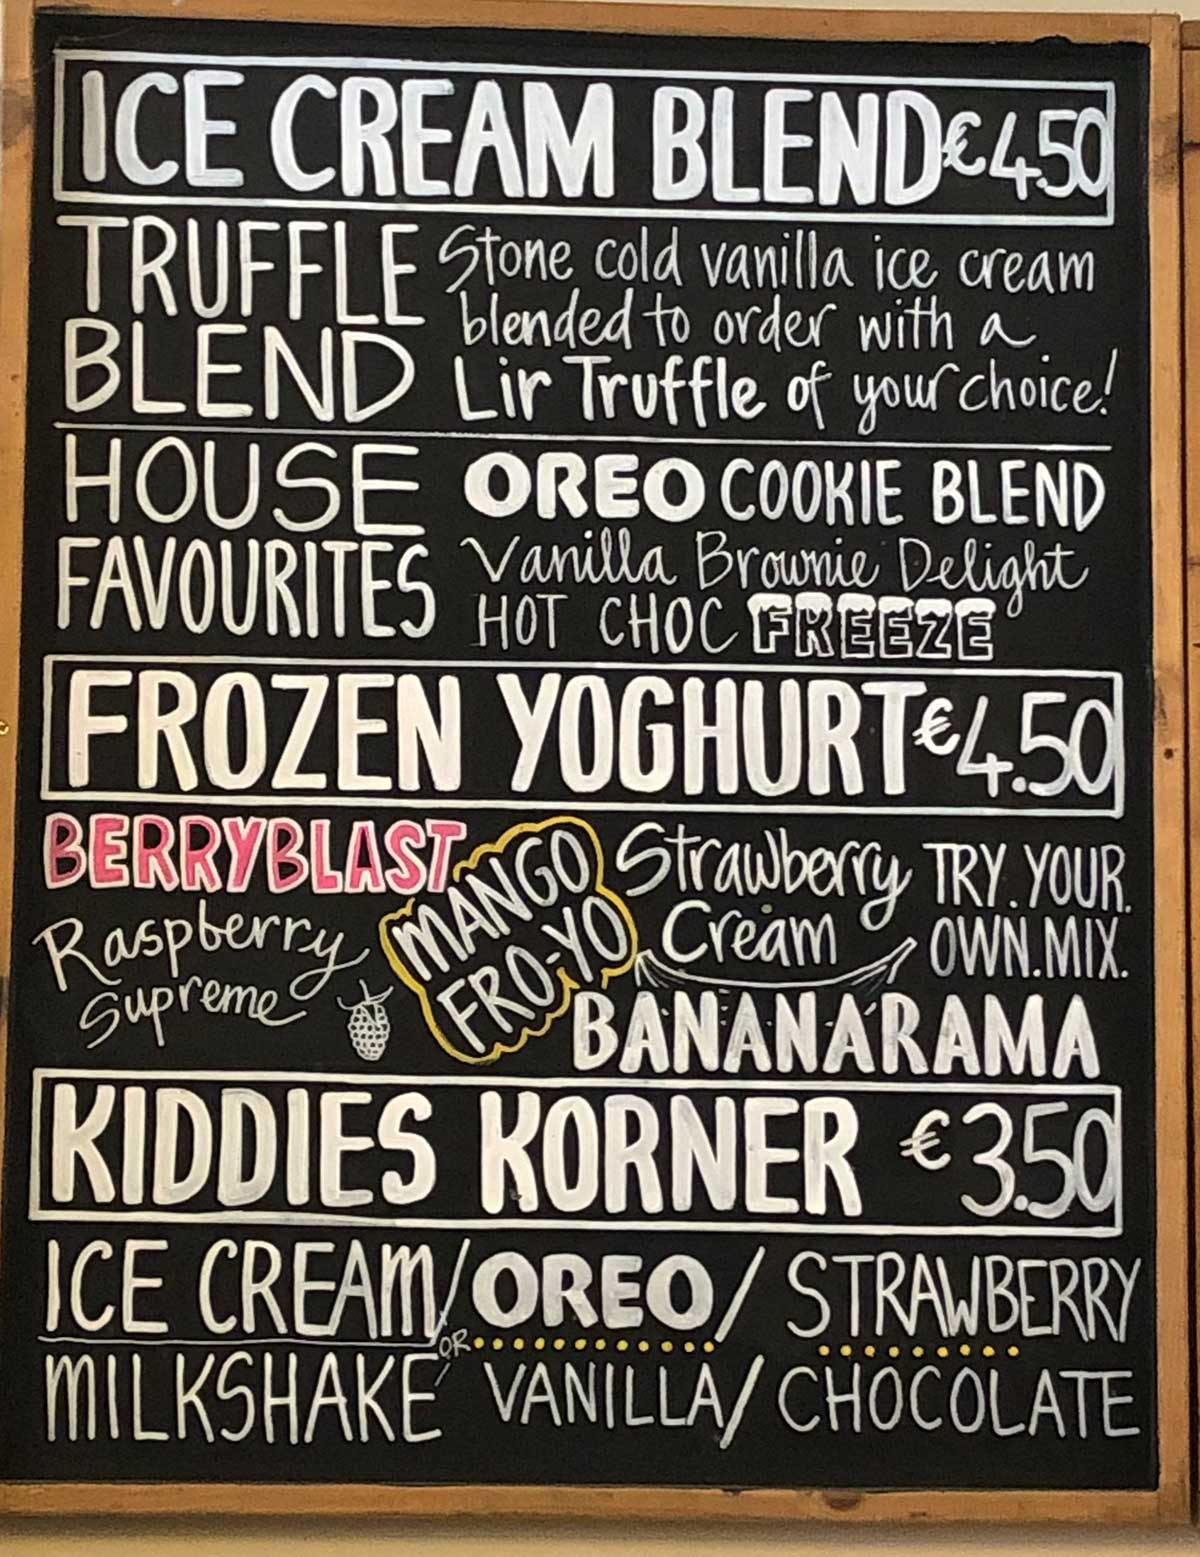 ICE CREAM BLEND €4.50
TRUFFLE
BLEND
Stone cold vanilla ice cream
blended to order with a
Lir Truffle of your choice!
HOUSE
FAVOURITES
OREO COOKIE BLEND
Vanilla Brownie Delight
HOT CHOC FREEZE
FROZEN YOGHURT €4.50
BERRYBLAST
Raspberry
Supreme
MANGO
FRO-YO
Strawberry
Cream
TRY.YOUR.
OWN.MIX.
BANANARAMA
KIDDIES KORNER €3.50
ICE CREAM/OREO/ STRAWBERRY
OR
MILKSHAKE VANILLA/CHOCOLATE